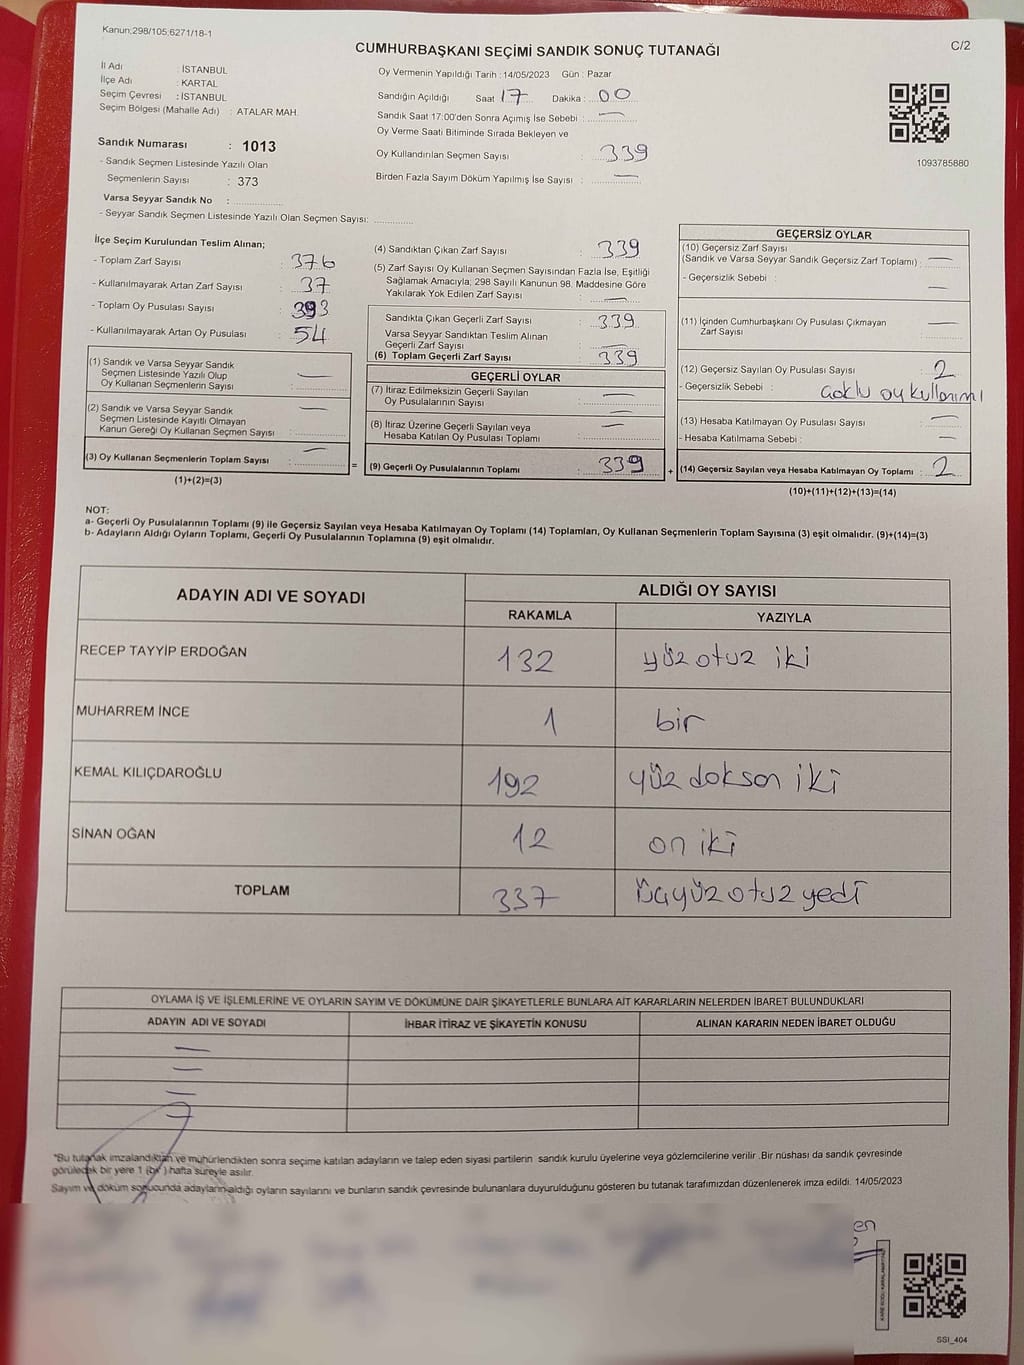 Kanun;298/105;6271/18-1
C/2
CUMHURBAŞKANI SEÇİMİ SANDIK SONUÇ TUTANAĞI
İl Adı : İSTANBUL
İlçe Adı : KARTAL
Seçim Çevresi : İSTANBUL
Seçim Bölgesi (Mahalle Adı) : ATALAR MAH.
Sandık Numarası : 1013
- Sandık Seçmen Listesinde Yazılı Olan
Seçmenlerin Sayısı : 373
Varsa Seyyar Sandık No :
- Seyyar Sandık Seçmen Listesinde Yazılı Olan Seçmen Sayısı:
Oy Vermenin Yapıldığı Tarih : 14/05/2023 Gün : Pazar
Sandığın Açıldığı Saat 17 Dakika : 00
Sandık Saat 17:00'den Sonra Açımış İse Sebebi : —
Oy Verme Saati Bitiminde Sırada Bekleyen ve
Oy Kullandırılan Seçmen Sayısı : 339
Birden Fazla Sayım Döküm Yapılmış İse Sayısı : —
1093785880
İlçe Seçim Kurulundan Teslim Alınan;
- Toplam Zarf Sayısı : 376
- Kullanılmayarak Artan Zarf Sayısı : 37
- Toplam Oy Pusulası Sayısı : 393
- Kullanılmayarak Artan Oy Pusulası : 54
(1) Sandık ve Varsa Seyyar Sandık
Seçmen Listesinde Yazılı Olup
Oy Kullanan Seçmenlerin Sayısı : —
(2) Sandık ve Varsa Seyyar Sandık
Seçmen Listesinde Kayıtlı Olmayan
Kanun Gereği Oy Kullanan Seçmen Sayısı : —
(3) Oy Kullanan Seçmenlerin Toplam Sayısı : —
(1)+(2)=(3)
=
(4) Sandıktan Çıkan Zarf Sayısı : 339
(5) Zarf Sayısı Oy Kullanan Seçmen Sayısından Fazla İse, Eşitliği
Sağlamak Amacıyla; 298 Sayılı Kanunun 98. Maddesine Göre
Yakılarak Yok Edilen Zarf Sayısı : —
Sandıkta Çıkan Geçerli Zarf Sayısı : 339
Varsa Seyyar Sandıktan Teslim Alınan
Geçerli Zarf Sayısı : —
(6) Toplam Geçerli Zarf Sayısı : 339
GEÇERLİ OYLAR
(7) İtiraz Edilmeksizin Geçerli Sayılan
Oy Pusulalarının Sayısı : —
(8) İtiraz Üzerine Geçerli Sayılan veya
Hesaba Katılan Oy Pusulası Toplamı : —
(9) Geçerli Oy Pusulalarının Toplamı : 339
+
GEÇERSİZ OYLAR
(10) Geçersiz Zarf Sayısı
(Sandık ve Varsa Seyyar Sandık Geçersiz Zarf Toplamı) : —
- Geçersizlik Sebebi : —
(11) İçinden Cumhurbaşkanı Oy Pusulası Çıkmayan
Zarf Sayısı : —
(12) Geçersiz Sayılan Oy Pusulası Sayısı : 2
- Geçersizlik Sebebi : çoklu oy kullanımı
(13) Hesaba Katılmayan Oy Pusulası Sayısı : —
- Hesaba Katılmama Sebebi : —
(14) Geçersiz Sayılan veya Hesaba Katılmayan Oy Toplamı : 2
(10)+(11)+(12)+(13)=(14)
NOT:
a- Geçerli Oy Pusulalarının Toplamı (9) ile Geçersiz Sayılan veya Hesaba Katılmayan Oy Toplamı (14) Toplamları, Oy Kullanan Seçmenlerin Toplam Sayısına (3) eşit olmalıdır. (9)+(14)=(3)
b- Adayların Aldığı Oyların Toplamı, Geçerli Oy Pusulalarının Toplamına (9) eşit olmalıdır.
ADAYIN ADI VE SOYADI
ALDIĞI OY SAYISI
RAKAMLA YAZIYLA
RECEP TAYYİP ERDOĞAN 132 yüz otuz iki
MUHARREM İNCE 1 bir
KEMAL KILIÇDAROĞLU 192 yüz doksan iki
SİNAN OĞAN 12 on iki
TOPLAM 337 üçyüz otuz yedi
OYLAMA İŞ VE İŞLEMLERİNE VE OYLARIN SAYIM VE DÖKÜMÜNE DAİR ŞİKAYETLERLE BUNLARA AİT KARARLARIN NELERDEN İBARET BULUNDUKLARI
ADAYIN ADI VE SOYADI İHBAR İTİRAZ VE ŞİKAYETİN KONUSU ALINAN KARARIN NEDEN İBARET OLDUĞU
—
—
—
—
*Bu tutanak imzalandıktan ve mühürlendikten sonra seçime katılan adayların ve talep eden siyasi partilerin sandık kurulu üyelerine veya gözlemcilerine verilir .Bir nüshası da sandık çevresinde
görülecek bir yere 1 (bir ) hafta süreyle asılır.
Sayım ve döküm sonucunda adayların aldığı oyların sayılarını ve bunların sandık çevresinde bulunanlara duyurulduğunu gösteren bu tutanak tarafımızdan düzenlenerek imza edildi. 14/05/2023
SSI_404